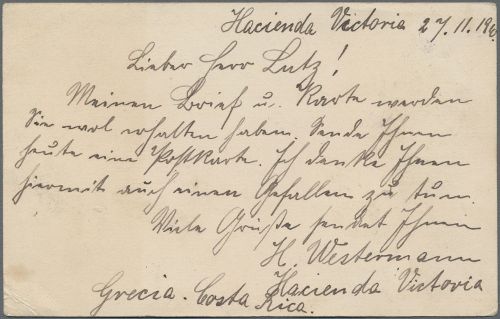 Hacienda Victoria 27.11.190
Lieber Herr Lutz!
Meinen Brief u. Karte werden
Sie wol erhalten haben. Sende Ihnen
heute eine Postkarte. Ich denke Ihnen
hiermit auch einen Gefallen zu tun.
Viele Grüße sendet Ihnen
H. Westermann
Hacienda Victoria
Grecia. Costa Rica.